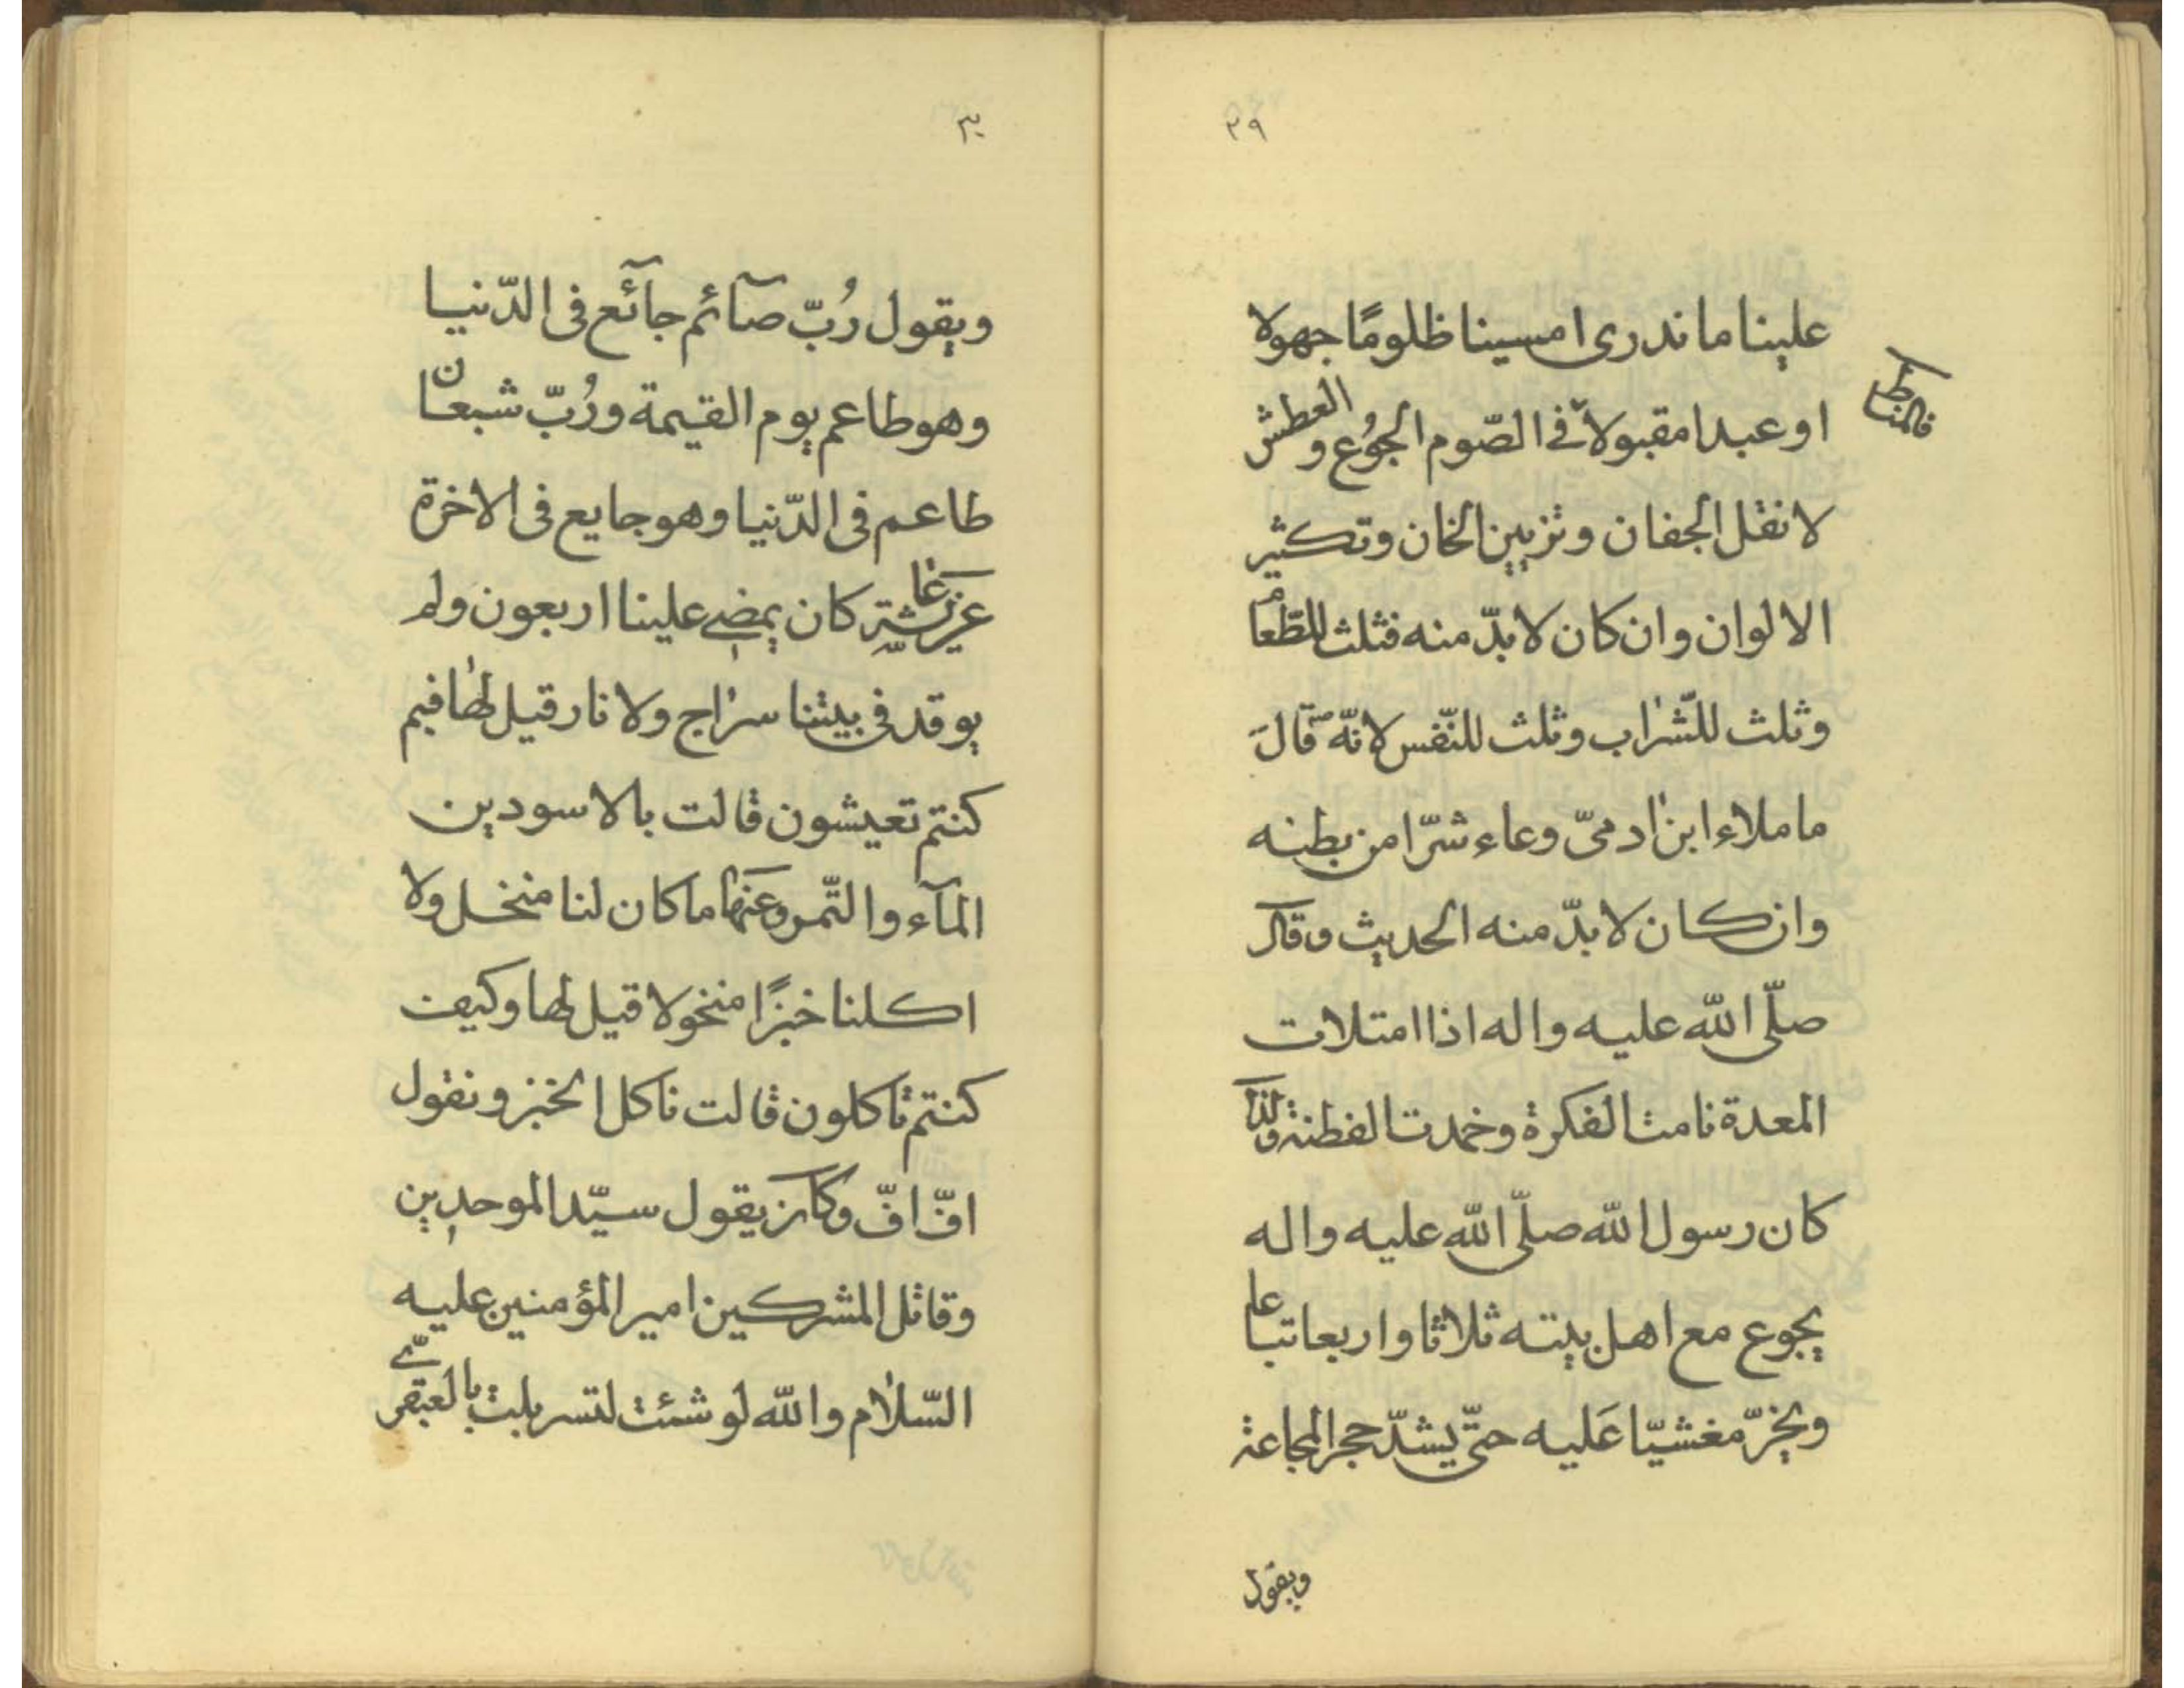 ٢٩
علينا ما ندرى امسينا ظلومًا جهولا
او عبدا مقبولا فى الصّوم الجوُع و العطش
فالمناط
لا نقل الجفان وتزيين الخان وتكثير
الالوان وان كان لا بدّ منه فثلث للطّعام
وثلث للشّراب وثلث للنّفس لانّه ص قالَ
ما ملاء ابن ادمىّ وعاء شرّا من بطنه
وان كان لا بدّ منه الحديث وقال
صلّى اللّه عليه واله اذا امتلات
المعدة نامت الفكرة وخمدت الفطنة ولذا
كان رسول اللّه صلّى اللّه عليه واله
يجوع مع اهل بيته ثلاثا واربعا تباعا
ويخرّ مغشيّا عَليه حتّى يشدّ حجر المجاعة
ويقول
٣٠
ويقول رُبّ صآئم جآئع فى الدّنيا
وهو طاعم يوم القيمة ورُبّ شبعان
طاعم فى الدّنيا وهو جايع فى الاخرة
عن عايشة كان يمضى علينا اربعون ولم
يوقد فى بيتنا سراج ولا نار قيل لها فبم
كنتم تعيشون قالت بالاسودين
المآء والتّمر وعنها ما كان لنا منخل ولا
اكلنا خبزًا منخولا قيل لها وكيف
كنتم تاكلون قالت ناكل الخبز ونقول
افّ افّ وكان يقول سيّد الموحدين
وقاتل المشركين امير المؤمنين عليه
السّلام واللّه لو شئت لتسربلت بالعبقرىّ